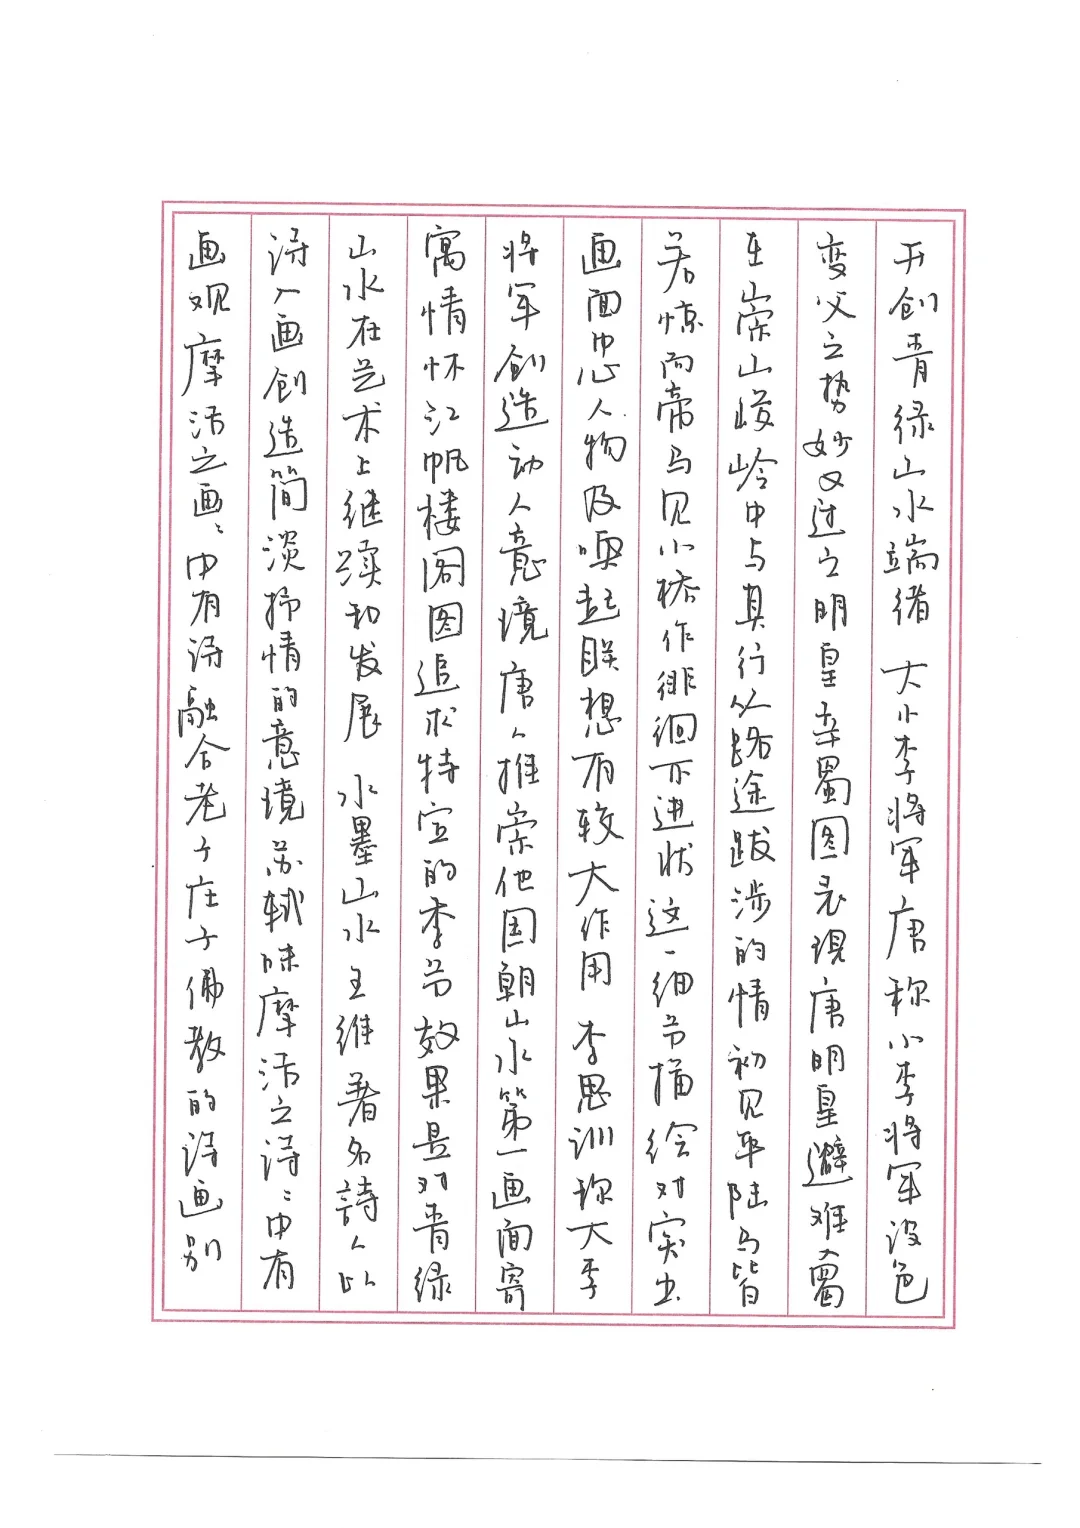 开创青绿山水端绪 大小李将军唐称小李将军设色
变父之势妙又过之明皇幸蜀图表现唐明皇避难蜀
在山崇山峻岭中与其行从路途跋涉的情初见平陆马皆
若惊而帝马见小桥作徘徊不进状这一细节描绘对突出
画面中心人物及唤起联想有较大作用 李思训称大李
将军创造动人意境唐人推崇他国朝山水第一画面寄
寓情怀江帆楼阁图追求特定的季节效果是对青绿
山水在艺术上继续和发展 水墨山水王维著名詩人以
诗入画创造简淡抒情的意境苏轼味摩诘之诗：中有
画观摩诘之画：中有诗融合老子庄子佛教的诗画别